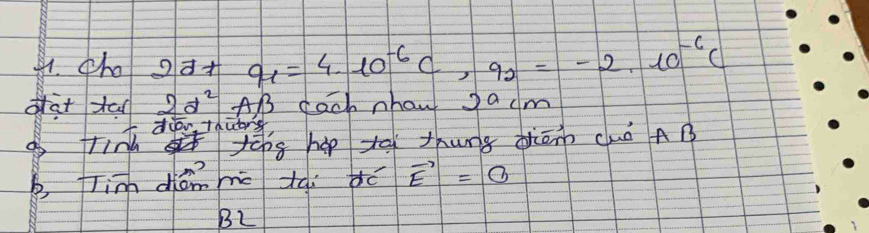 1. Cho 2 đt q₁ = 4. 10⁻⁶ C, q₂ = -2. 10⁻⁶ C
đặt tại 2 đ² AB cách nhau cm
điện trường
a, Tính tổng hợp tại trung điểm của AB
b, Tìm điểm mà tại đó E⃗ = 0
B2